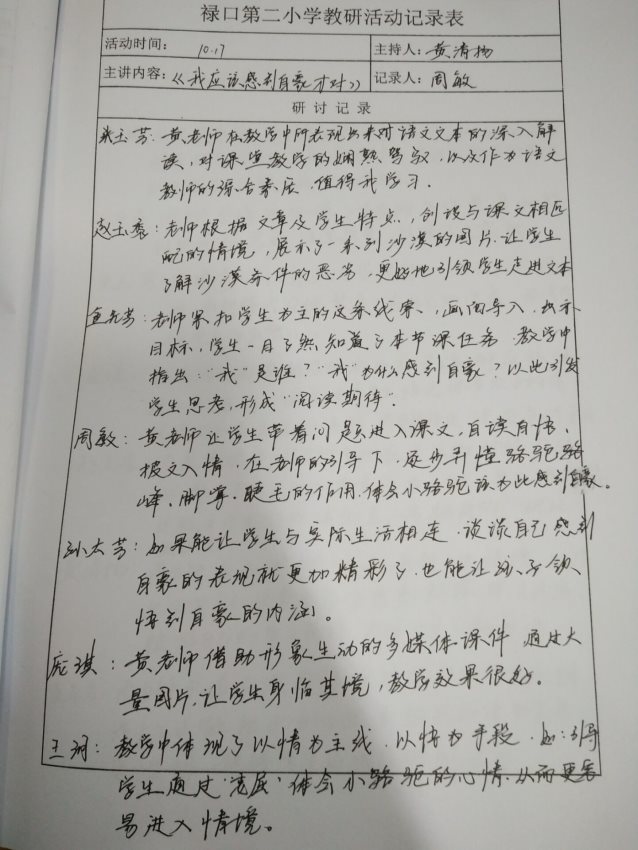 禄口第二小学教研活动记录表
活动时间: 10.17 主持人: 黄清杨
主讲内容:《我应该感到自豪才对》 记录人: 周敏
研讨记录
朱玉芳: 黄老师在教学中所表现出来对语文文本的深入解
读,对课堂教学的娴熟驾驭,以及作为语文
教师的综合素质,值得我学习.
赵玉香: 老师根据文章及学生特点,创设与课文相匹
配的情境,展示了一系列沙漠的图片.让学生
了解沙漠条件的恶劣,更好地引领学生走进文本
老师紧扣学生为主的这条线索,画面导入,出示
目标,学生一目了然知道了本节课任务.教学中
指出:“我”是谁?“我”为什么感到自豪?以此引发
学生思考,形成“阅读期待”.
周敏: 黄老师让学生带着问题进入课文,自读自悟,
披文入情.在老师的引导下,逐步弄懂骆驼驼
峰、脚掌、睫毛的作用.体会小骆驼该为此感到自豪。
孙大芳: 如果能让学生与实际生活相连.谈谈自己感到
自豪的表现就更加精彩了.也能让孩子领
悟到自豪的内涵。
庞琪: 黄老师借助形象生动的多媒体课件 通过大
量图片.让学生身临其境,教学效果很好。
王珂: 教学中体现了以情为主线.以悟为手段.如:引导
学生通过 体会小骆驼的心情.从而更容
易进入情境。